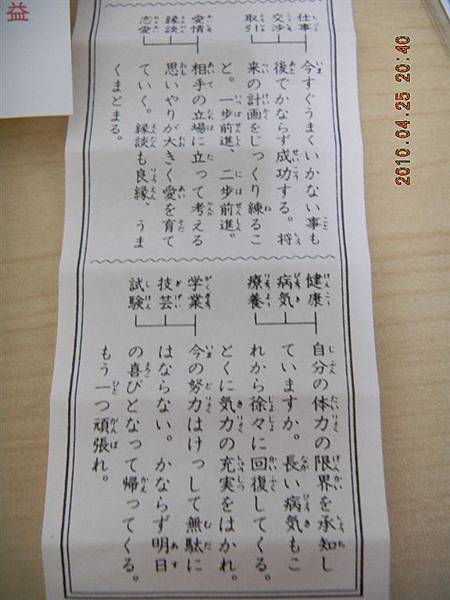 仕事
交渉
取引
今すぐうまくいかない事も
後でかならず成功する。将
来の計画をじっくり練るこ
と。一歩前進、二歩前進。
愛情
縁談
恋愛
相手の立場に立って考える
思いやりが大きく愛を育て
ていく。縁談も良縁、うま
くまとまる。
健康
病気
療養
自分の体力の限界を承知し
ていますか。長い病気もこ
れから徐々に回復してくる。
とくに気力の充実をはかれ。
学業
技芸
試験
今の努力はけっして無駄に
はならない。かならず明日
の喜びとなって帰ってくる。
もう一つ頑張れ。
益
2010.04.25 20:40